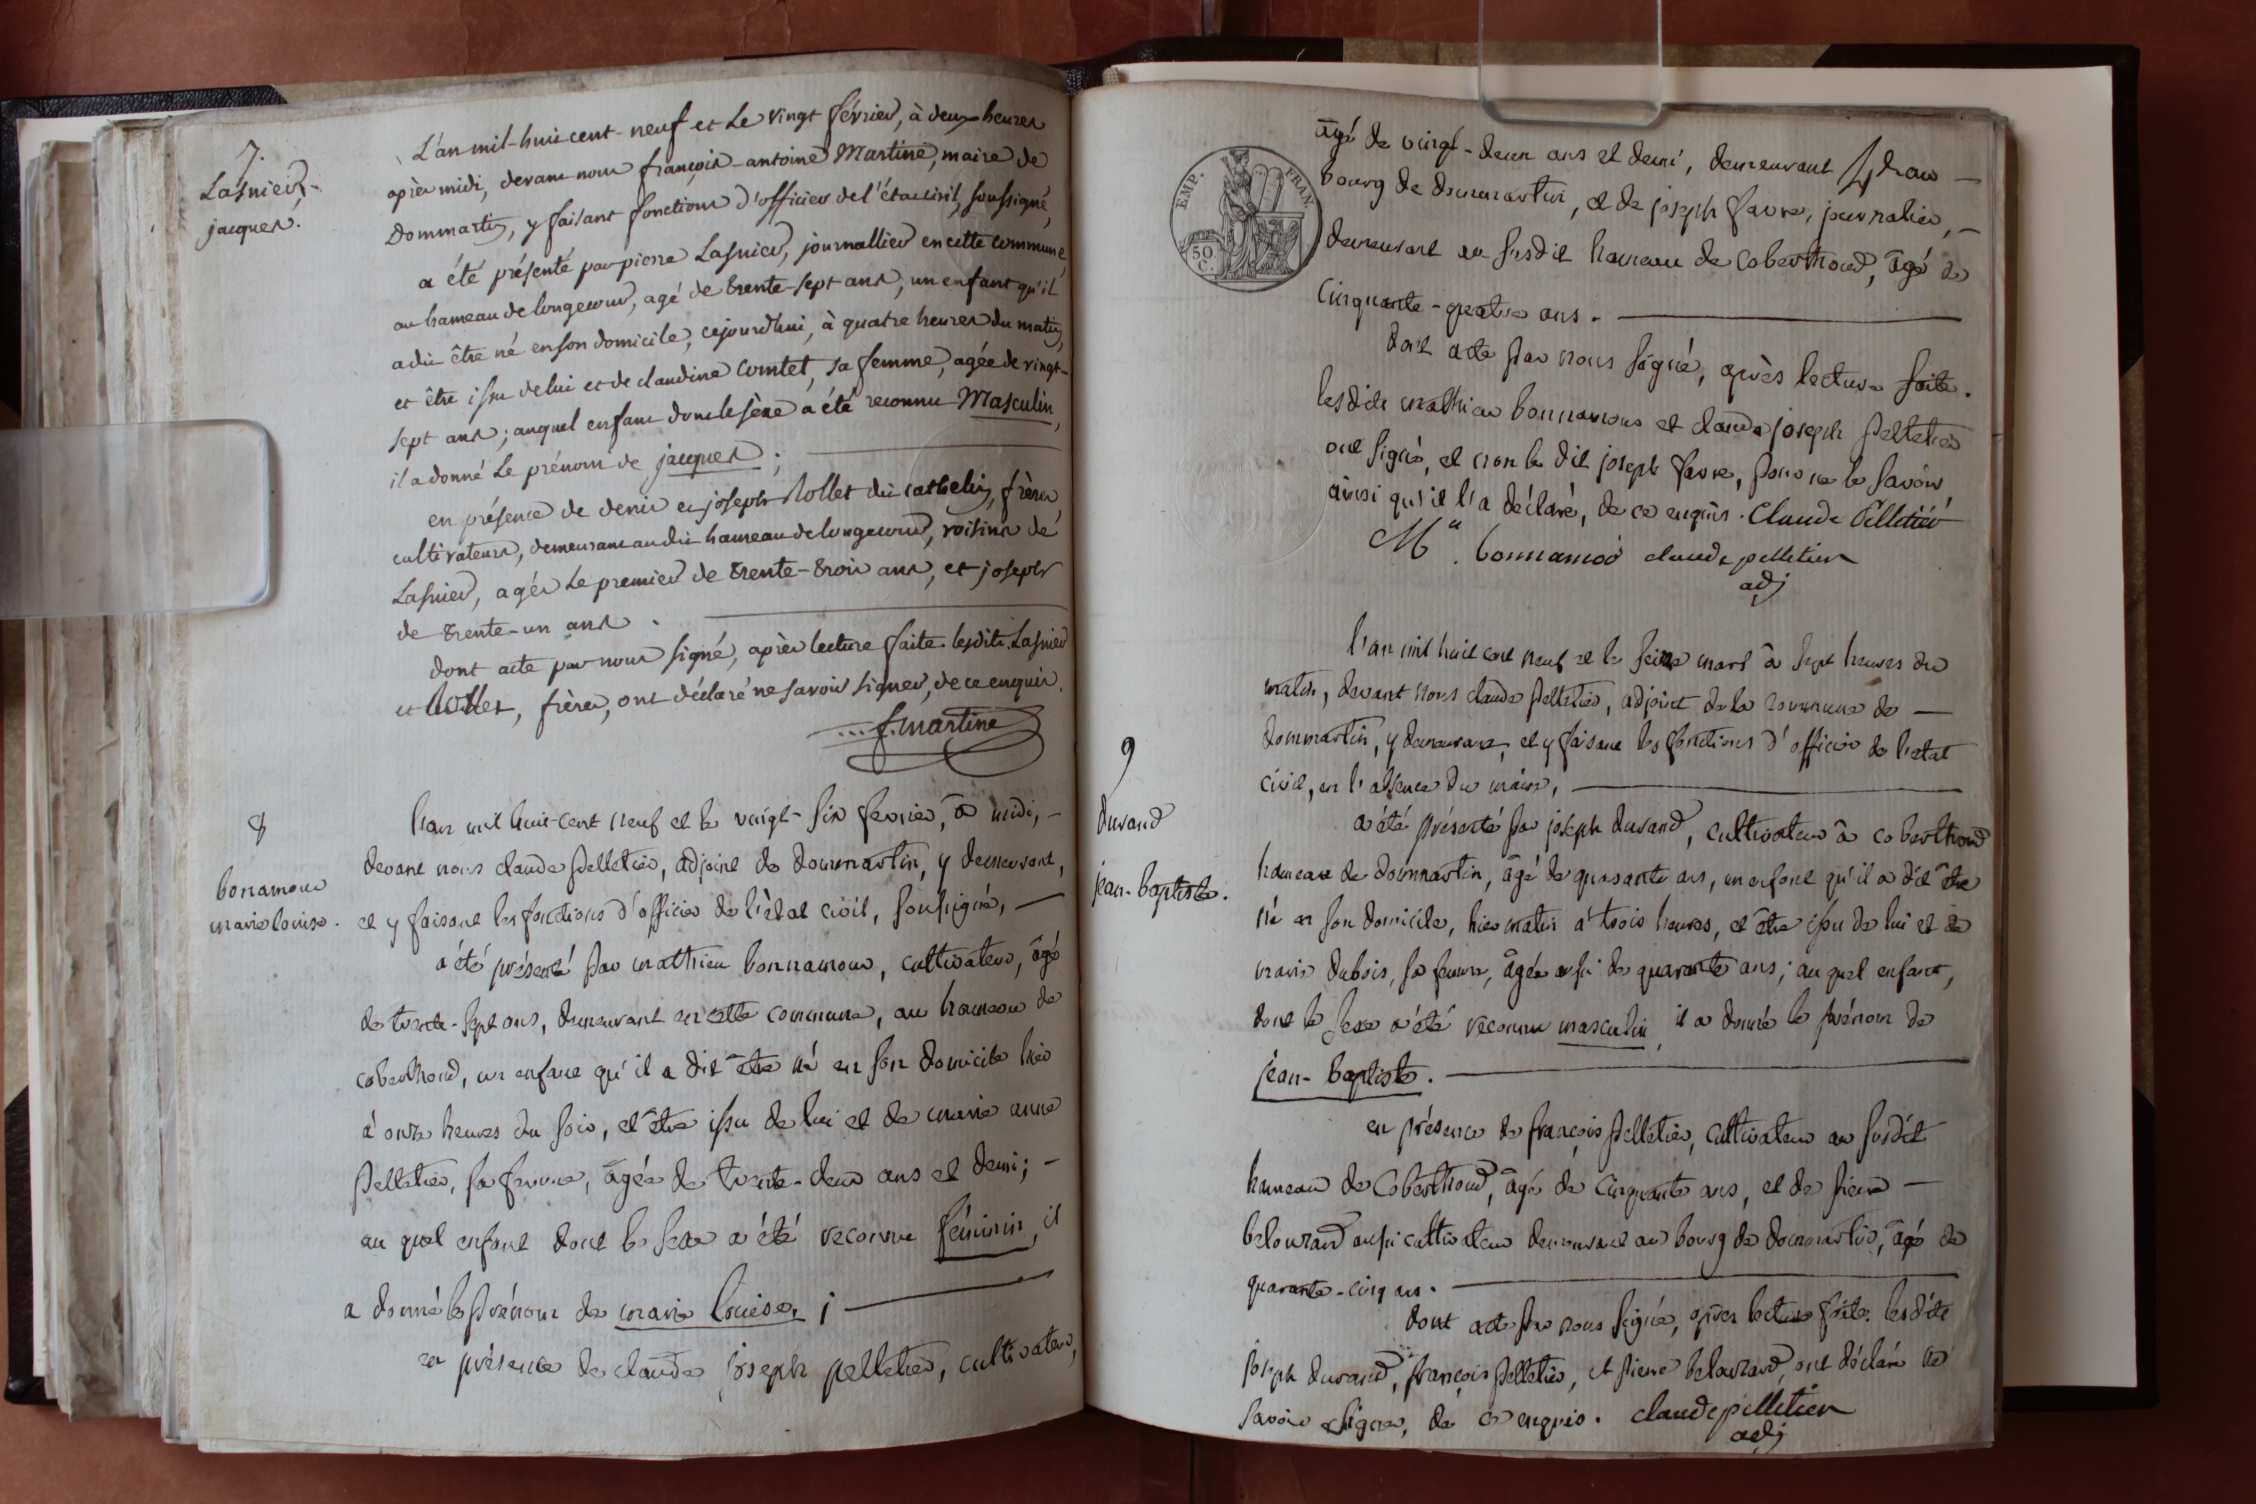 7.
Lasnier,
jacques.
L'an mil-huit cent-neuf et Le vingt février, à deux heures
après midi, devant nous françois-antoine Martine, maire de
Dommartin, y faisant fonctions d'officier de l'état civil, soussigné,
a été présenté par pierre Lasnier, journallier en cette commune,
au hameau de longecour, agé de trente-sept ans, un enfant qu'il
a dit être né en son domicile, cejourd'hui, à quatre heures du matin,
et être issu de lui et de claudine Comtet, sa femme, agée de vingt-
sept ans; auquel enfant dont le sexe a été reconnu Masculin,
il a donné Le prénom de jacques;
en présence de denis et joseph Rollet dit cathelin, frères,
cultivateurs, demeurant audit hameau de longecour, voisins de
Lasnier, agés Le premier de trente-trois ans, et joseph
de trente-un ans.
dont acte par nous signé, après lecture faite. lesdits Lasnier
et Rollet, frères, ont déclaré ne savoir signer, de ce enquis.
f. martine
8
bonamour
marie louise.
l'an mil huit-cent neuf et le vingt-six fevrier, à midi,
devant nous claude pelletier, adjoint de dommartin, y demeurant,
et y faisant les fonctions d'officier de l'état civil, soussigné,
a été présenté par mathieu bonnamour, cultivateur, âgé
de trente-sept ans, demeurant en cette commune, au hameau de
coberthoud, un enfant qu'il a dit être né en son domicile hier
à onze heures du soir, et être issu de lui et de marie anne
pelletier, sa femme, âgée de trente-deux ans et demi;
au quel enfant dont le sexe a été reconnu féminin, il
a donné le prénom de marie louise. ;
en présence de claude joseph pelletier, cultivateur,
EMP. FRAN.
50 C.
âgé de vingt-deux ans et demi, demeurant au
bourg de dommartin, et de joseph favre, journalier,
demeurant au susdit hameau de coberthoud, âgé de
cinquante-quatre ans.
dont acte par nous signé, après lecture faite.
lesdits mathieu bonnamour et claude joseph pelletier
ont signé, et non le dit joseph favre, pour ne le savoir,
ainsi qu'il l'a déclaré, de ce enquis. Claude Pelletier
Mu. bonnamour claude pelletier
adj
9
durand
jean-baptiste.
l'an mil huit cent neuf et le seize mars à sept heures du
matin, devant nous claude pelletier, adjoint de la commune de
dommartin, y demeurant, et y faisant les fonctions d'officier de l'état
civil, en l'absence du maire,
a été présenté par joseph durand, cultivateur à coberthoud
hameau de dommartin, âgé de quarante ans, un enfant qu'il a dit être
né en son domicile, hier matin à trois heures, et être issu de lui et de
marie dubois, sa femme, âgée aussi de quarante ans; au quel enfant,
dont le sexe a été reconnu masculin, il a donné le prénom de
jean-baptiste.
en présence de françois pelletier, cultivateur au susdit
hameau de Coberthoud, âgé de cinquante ans, et de pierre
belourard aussi cultivateur demeurant au bourg de dommartin, âgé de
quarante-cinq ans.
dont acte par nous signé, après lecture faite. lesdits
joseph durand, françois pelletier, et pierre belourard, ont déclaré ne
savoir signer, de ce enquis. claude pelletier
adj